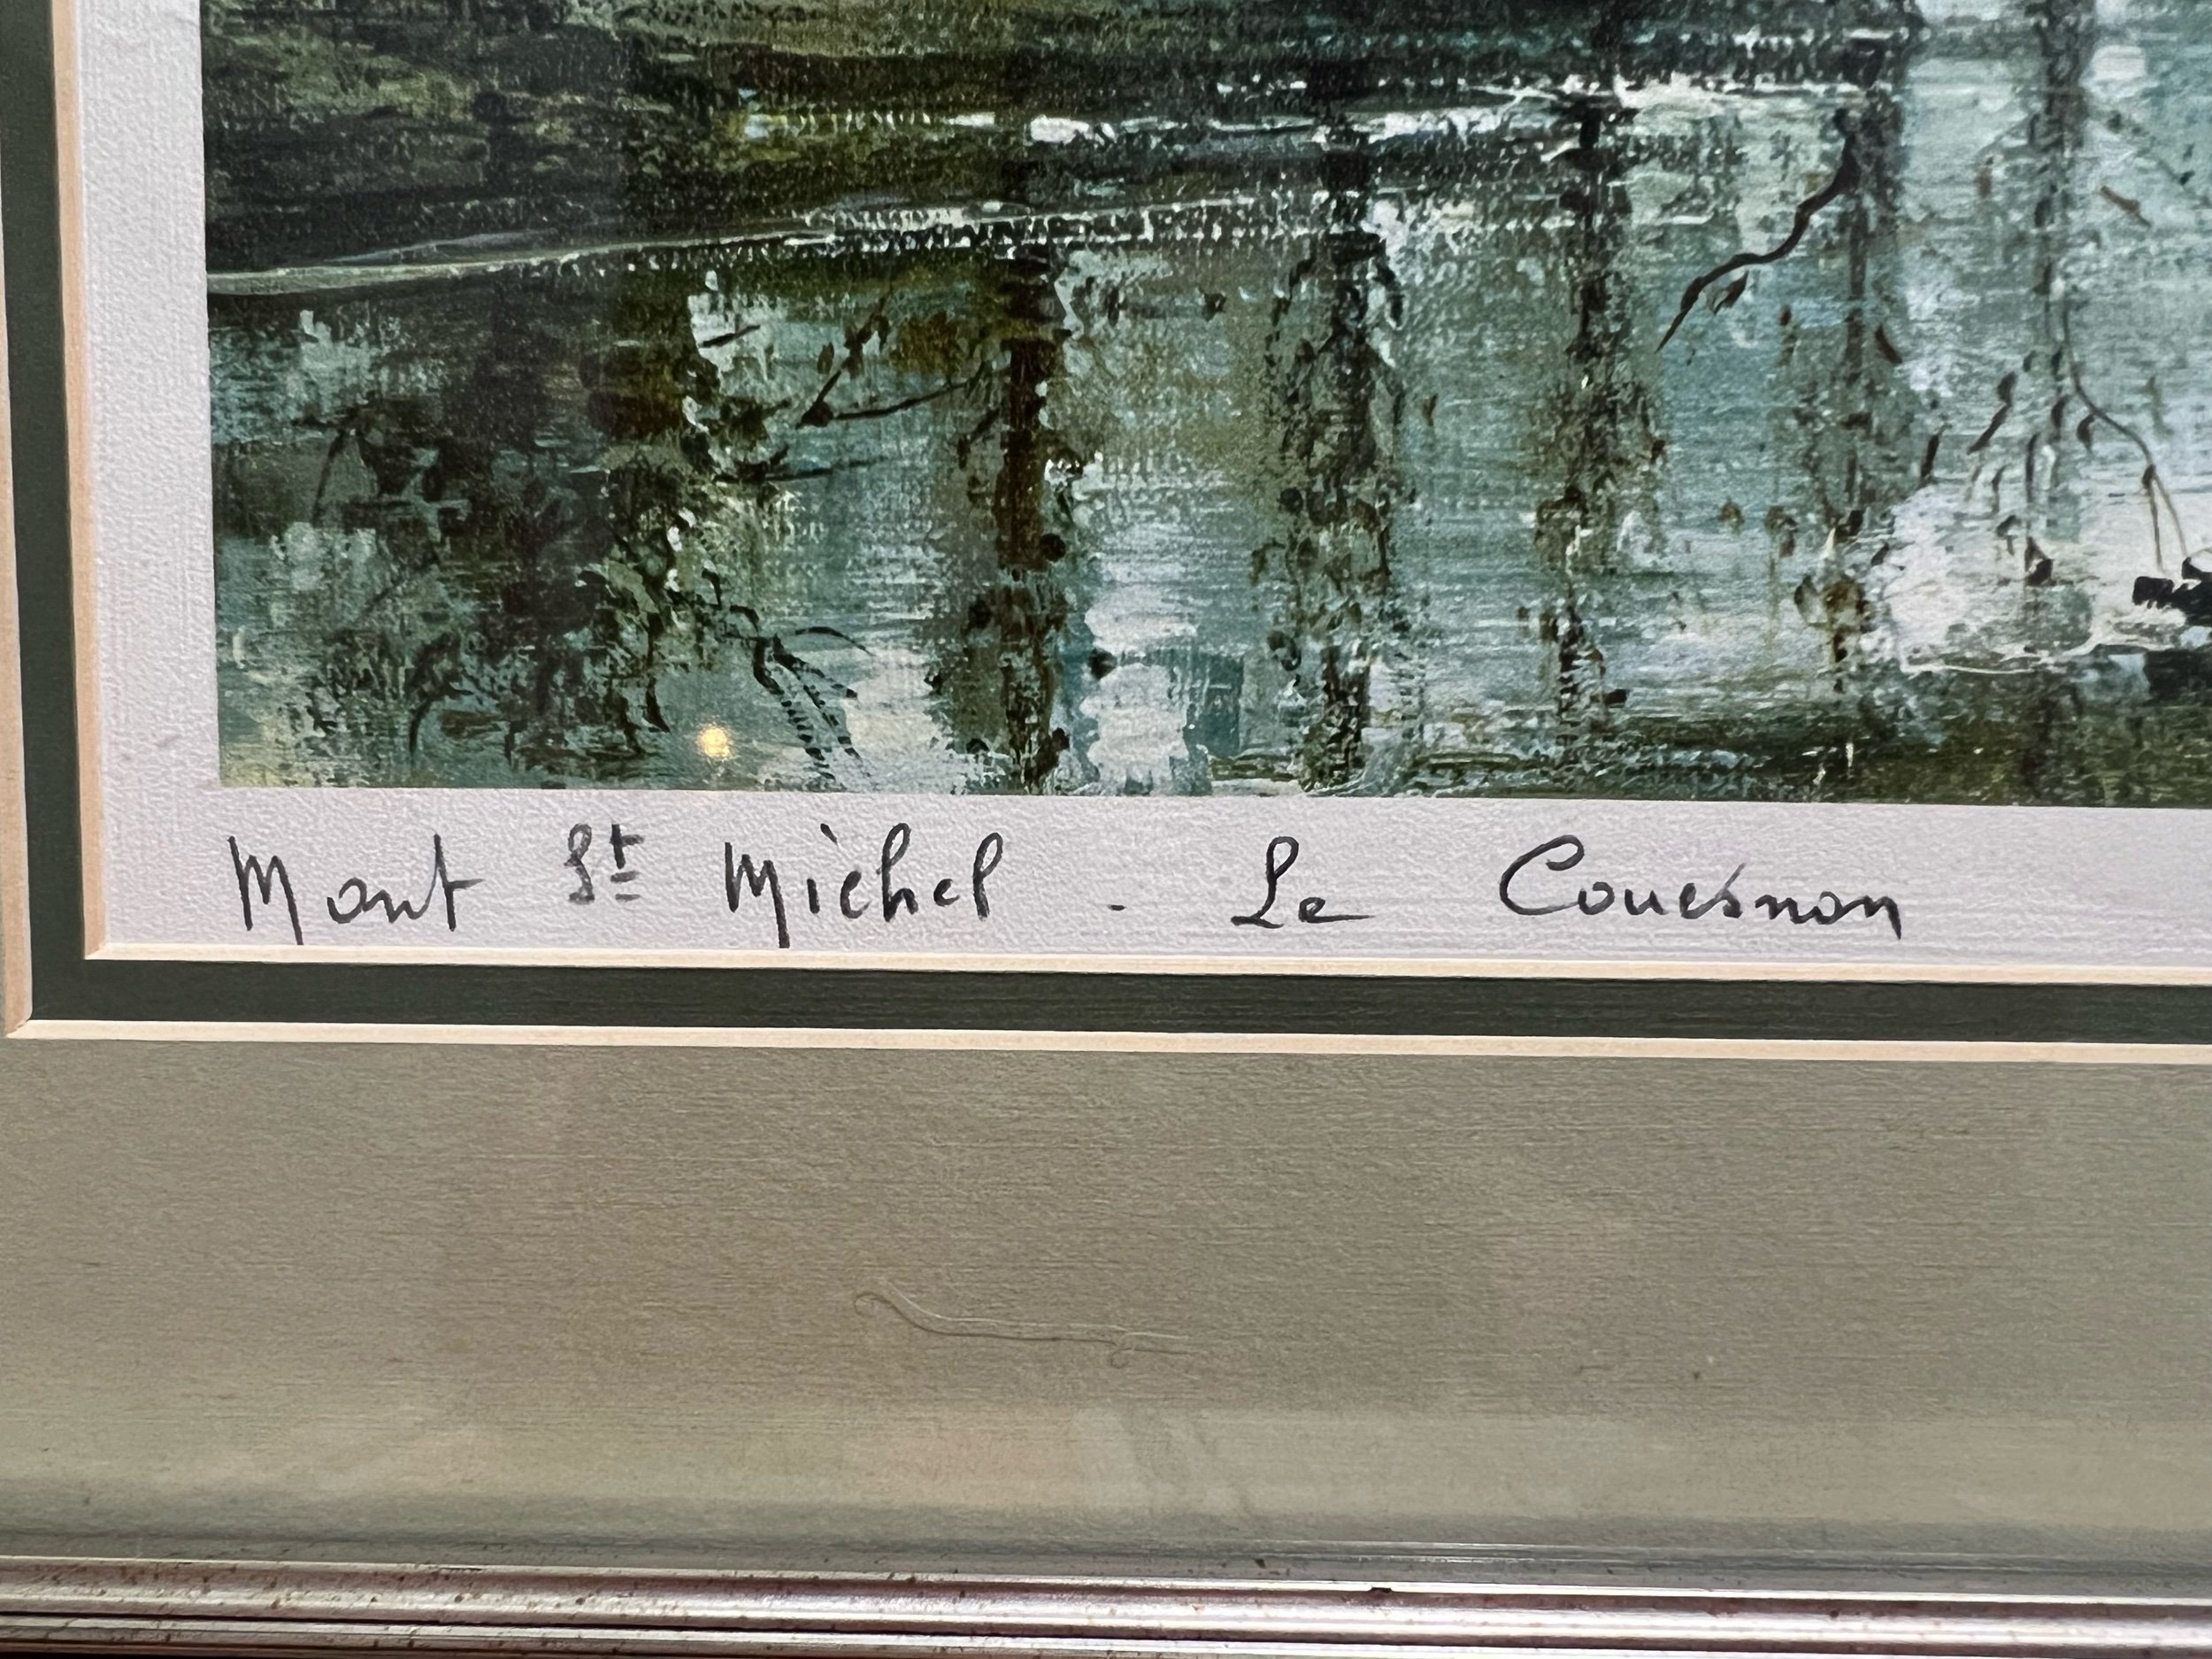 Mont St Michel - Le Couesnon